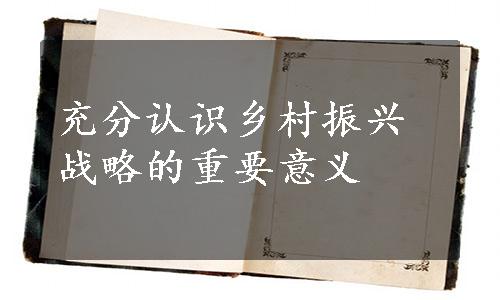 充分认识乡村振兴
战略的重要意义